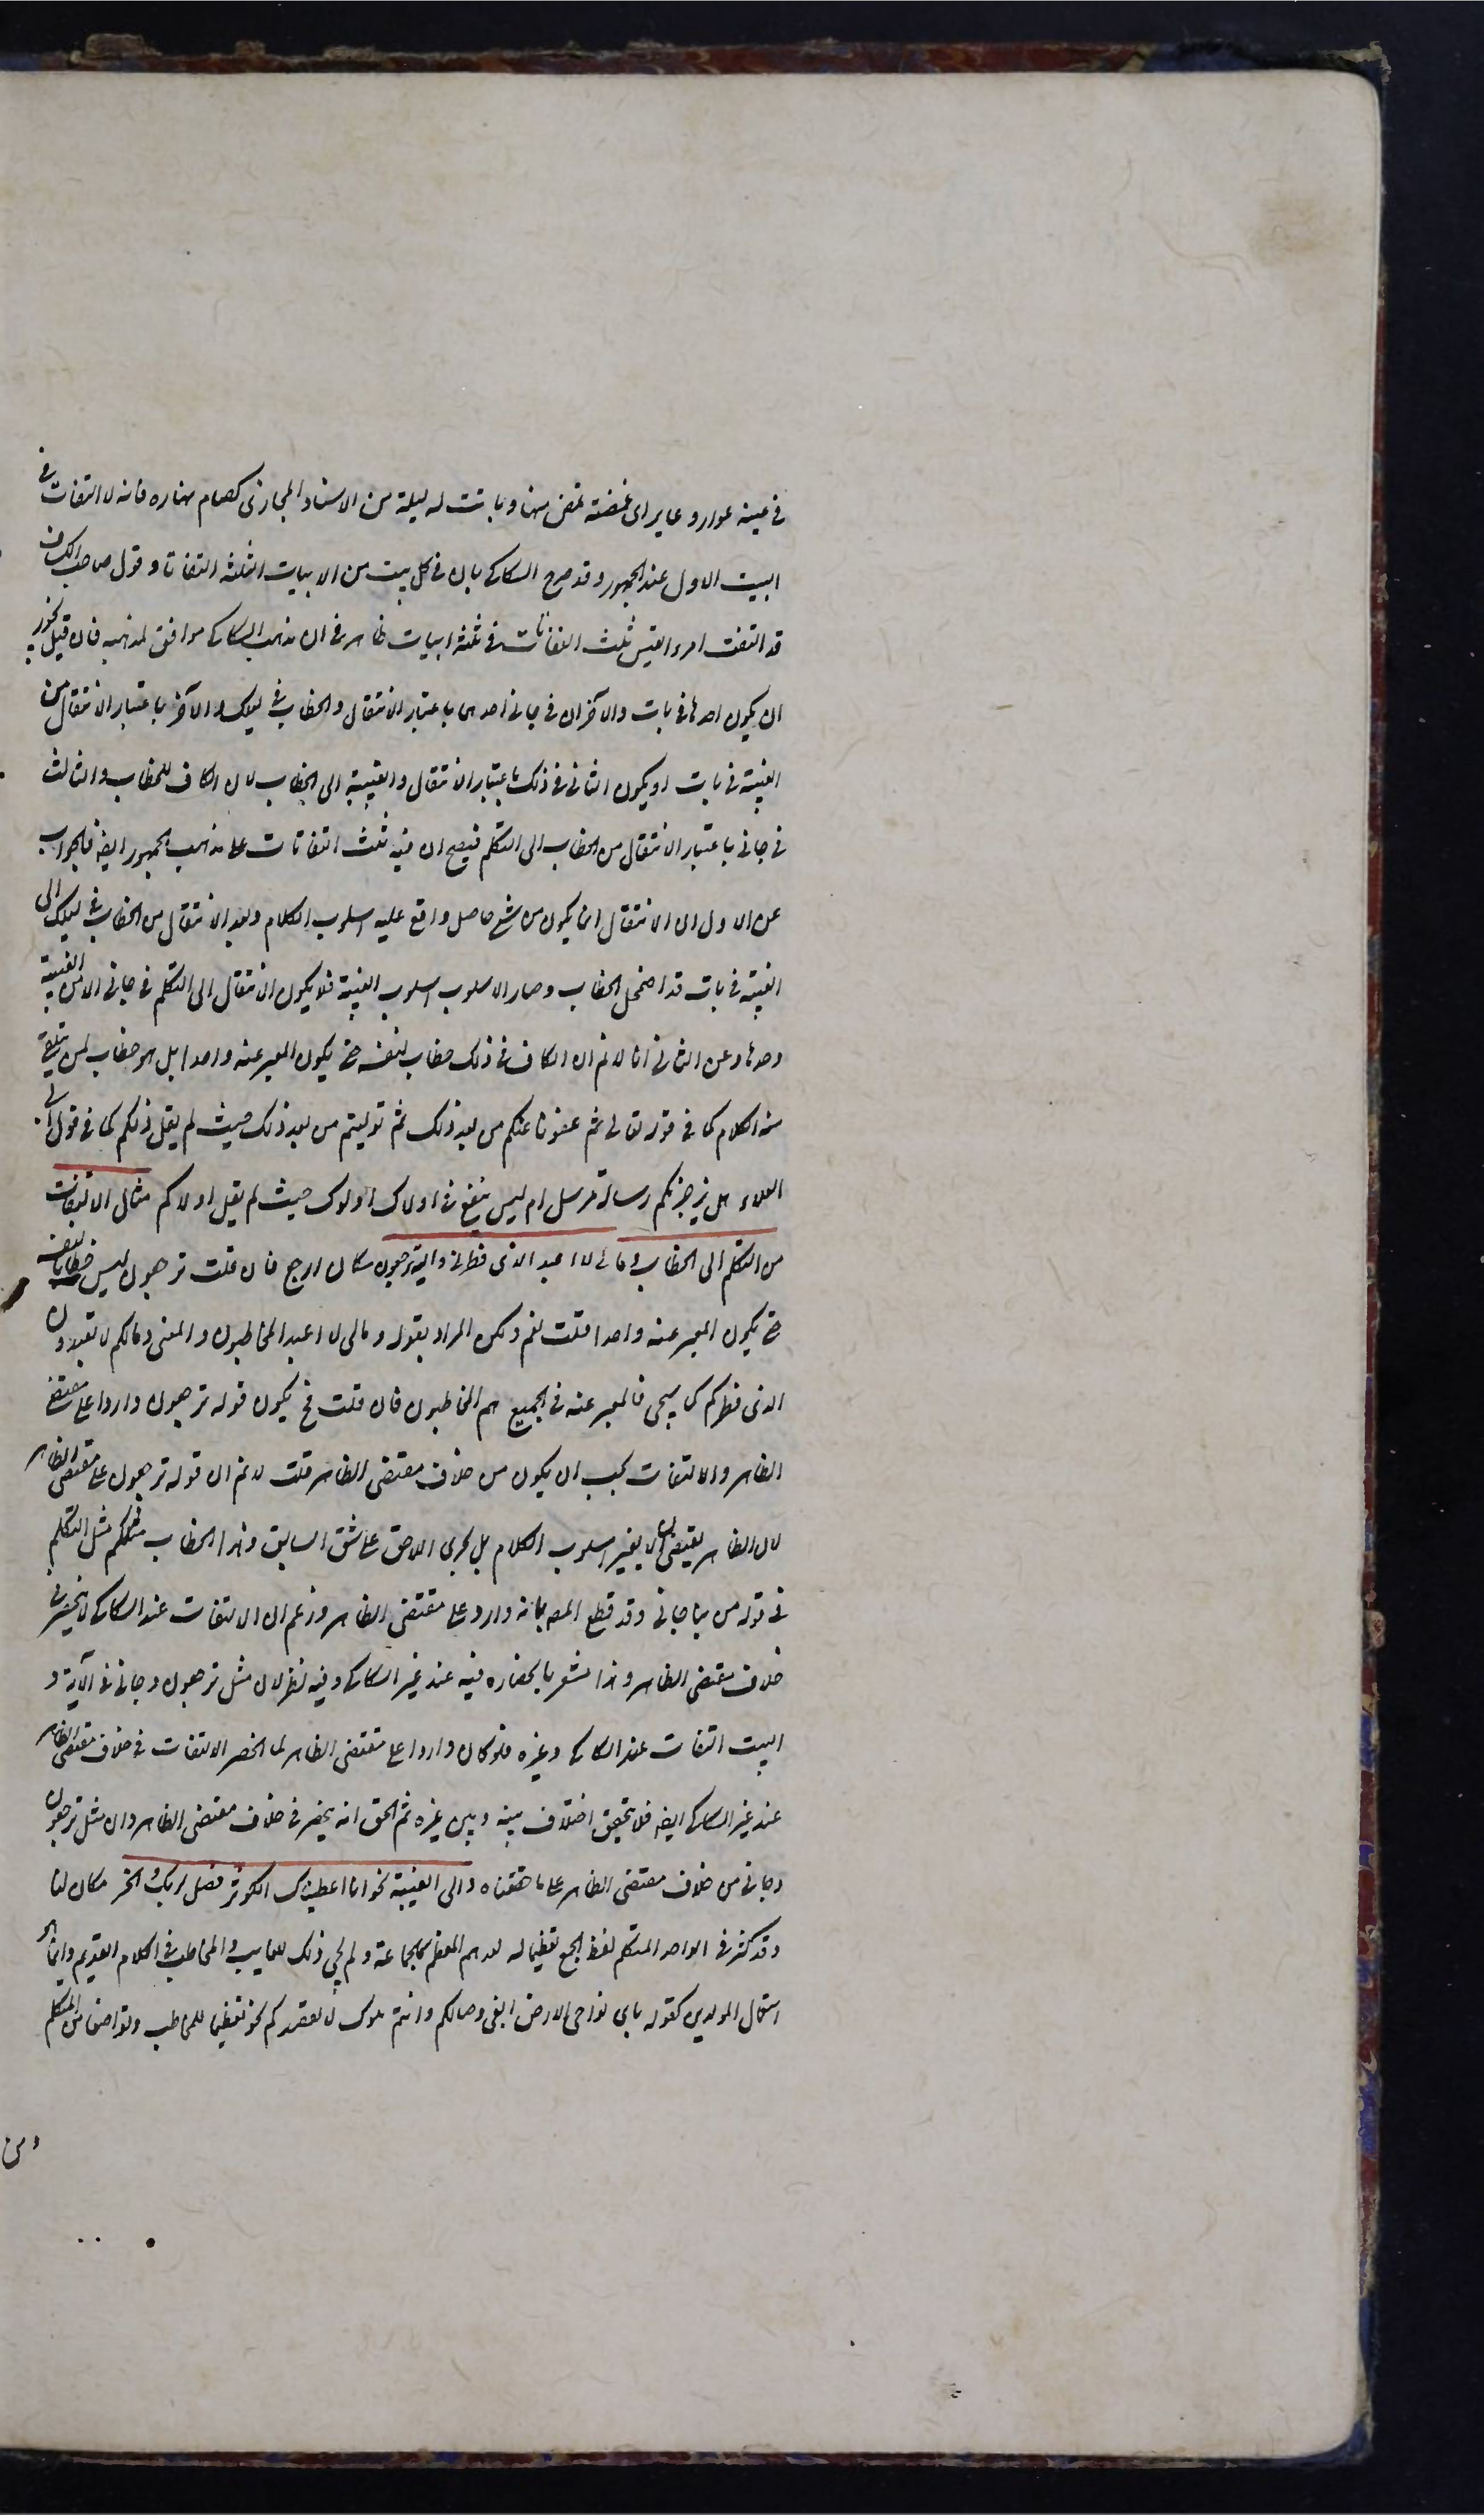 في عينه عوار وعاير اى غمضة تمض منها وباتت له ليلة من الاسناد المجازى كصام نهاره فانه لا التفات في
البيت الاول عند الجمهور وقد صرح السكاكى بان في كل بيت من الابيات الثلثة التفاتا وقول صاحب الكشاف
قد التفت امرء القيس ثلث التفاتات في ثلثة ابيات ظاهر في ان مذهب السكاكى موافق لمذهبه فان قيل يجوز
ان يكون احدها في بات والآخران في جاءنى احدهما باعتبار الانتقال والخطاب في ليلك والآخر باعتبار الانتقال من
الغيبة في بات او يكون الثانى في ذلك باعتبار الانتقال والغيبة الى الخطاب لان الكاف للخطاب والثالث
في جاءنى باعتبار الانتقال من الخطاب الى التكلم فيصح ان فيه ثلث التفاتات على مذهب الجمهور ايضا فالجواب
عن الاول ان الانتقال انما يكون من شئ حاصل واقع عليه اسلوب الكلام وبعد الانتقال من الخطاب في ليلك الى
الغيبة في بات قد اضمحل الخطاب وصار الاسلوب اسلوب الغيبة فلا يكون الانتقال الى التكلم في جاءنى الا من الغيبة
وحدها وعن الثانى انا لا نم ان الكاف في ذلك خطاب لنفسه حتى يكون المعبر عنه واحدا بل هو خطاب لمن يتلقى
منه الكلام كما في قوله تعالى ثم عفونا عنكم من بعد ذلك ثم توليتم من بعد ذلك حيث لم يقل ذلكم كما في قول ابى
العلاء هل يزجرنكم رسالة مرسل ام ليس ينفع في اولاك الوك حيث لم يقل اولاكم مثال الالتفات
من التكلم الى الخطاب وما لى لا اعبد الذى فطرنى واليه ترجعون مكان ارجع فان قلت ترجعون ليس خطابا لنفسه
حتى يكون المعبر عنه واحدا قلت نعم ولكن المراد بقوله ومالى لا اعبد المخاطبون والمعنى ومالكم لا تعبدون
الذى فطركم كما سيجى فالمعبر عنه في الجميع هم المخاطبون فان قلت فح يكون قوله ترجعون واردا على مقتضى
الظاهر والالتفات يجب ان يكون من خلاف مقتضى الظاهر قلت لا نم ان قوله ترجعون على مقتضى الظاهر
لان الظاهر يقتضى ان لا يغير اسلوب الكلام بل يجرى اللاحق على سنن السابق وهذا الخطاب مثل التكلم
في قوله من نبأ جاءنى وقد قطع المص بانه وارد على مقتضى الظاهر وزعم ان الالتفات عند السكاكى لا ينحصر في
خلاف مقتضى الظاهر وهذا مشعر بانحصاره فيه عند غير السكاكى وفيه نظر لان مثل ترجعون وجاءنى في الآية و
البيت التفات عند السكاكى وغيره فلو كان واردا على مقتضى الظاهر لما انحصر الالتفات في خلاف مقتضى الظاهر
عند غير السكاكى ايضا فلا يتحقق اختلاف بينه وبين غيره ثم الحق انه ينحصر في خلاف مقتضى الظاهر وان مثل ترجعون
وجاءنى من خلاف مقتضى الظاهر على ما حققناه والى الغيبة نحو انا اعطيناك الكوثر فصل لربك وانحر مكان لنا
وقد كثر في الواحد المتكلم لفظ الجمع تعظيما له لعدهم المعظم كالجماعة ولم يجئ ذلك للغايب والمخاطب في الكلام القديم وانما هو
استعمال المولدين كقوله باى نواحى الارض ابغى وصالكم وانتم ملوك ما لمقصدكم نحو تعظيما للمخاطب وتواضعا من المتكلم
ومن